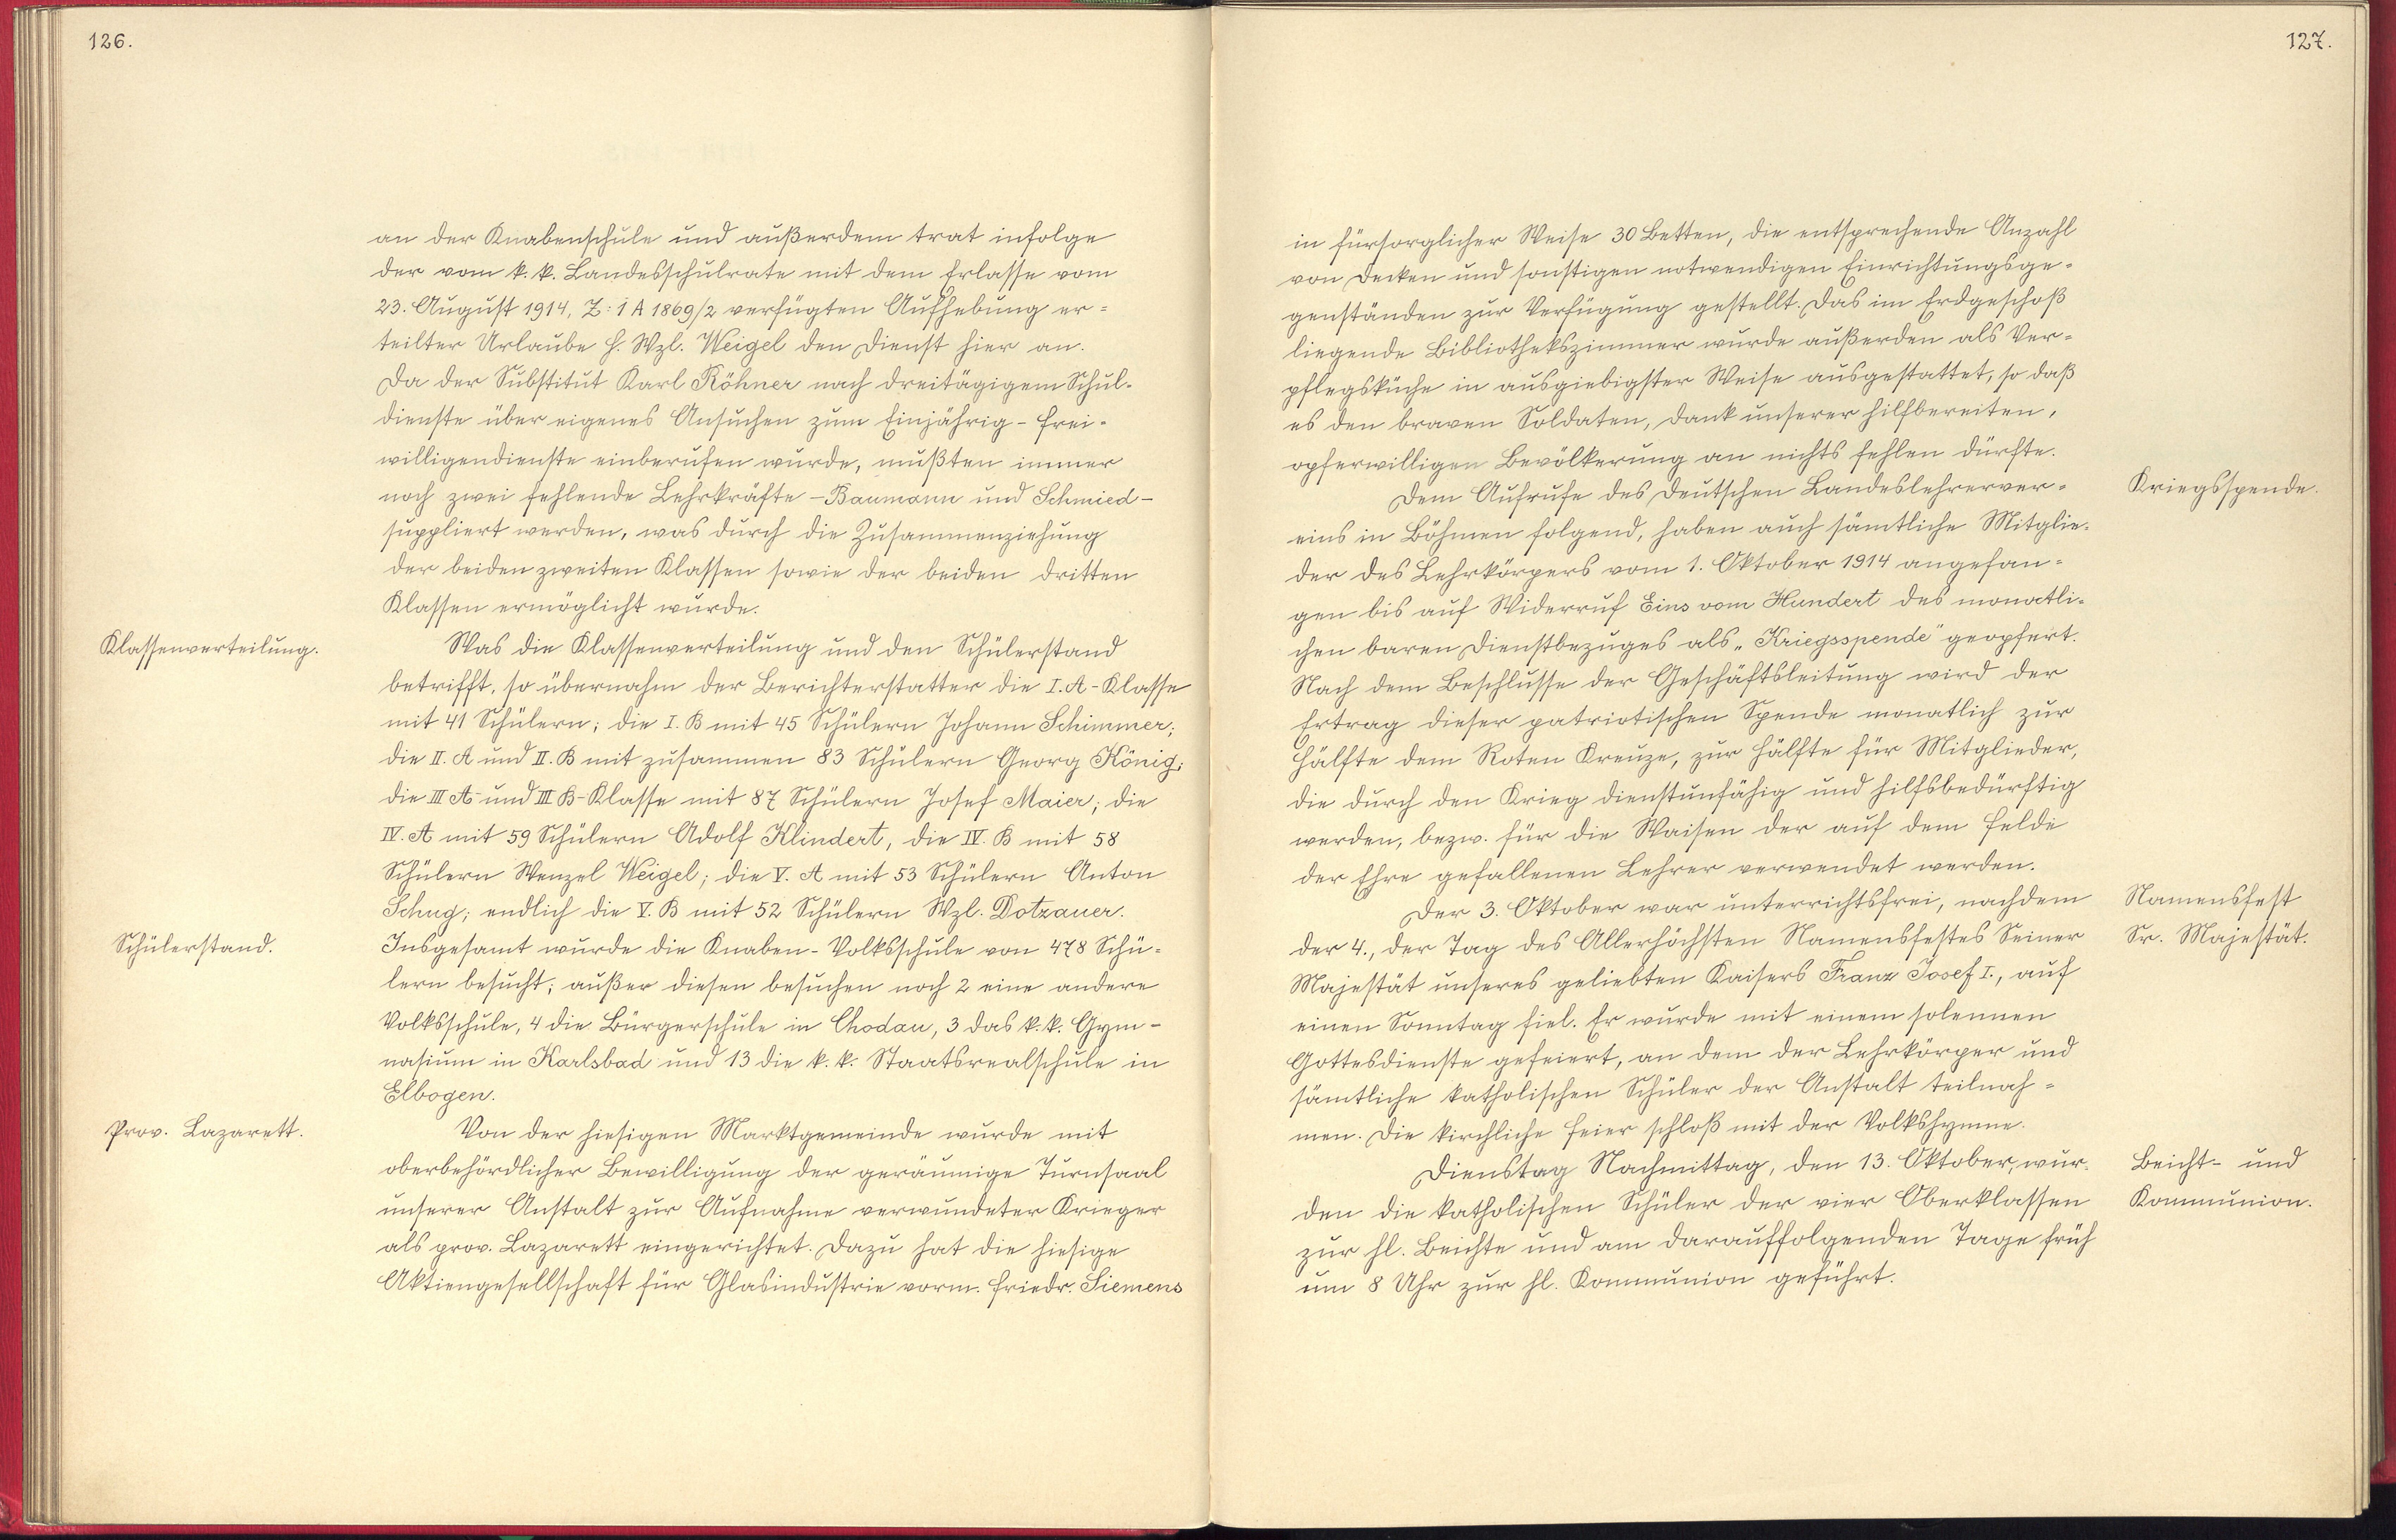 126.
an der Knabenschule und außerdem trat infolge
der vom k. k. Landesschulrate mit dem Erlasse vom
23. August 1914, Z: 1 A 1869/2 verfügten Aufhebung er=
teilter Urlaube H. Wzl. Weigel den Dienst hier an.
Da der Substitut Karl Röhner nach dreitägigem Schul-
dienste über eigenes Ansuchen zum Einjährig-Frei-
willigendienste einberufen wurde, mußten immer
noch zwei fehlende Lehrkräfte – Baumann und Schmied –
suppliert werden, was durch die Zusammenziehung
der beiden zweiten Klassen sowie der beiden dritten
Klassen ermöglicht wurde.
Klassenverteilung.
Was die Klassenverteilung und den Schülerstand
betrifft, so übernahm der Berichterstatter die I. A-Klasse
mit 41 Schülern; die I. B mit 45 Schülern Johann Schimmer;
die II. A und II. B mit zusammen 83 Schülern Georg König;
die III A und III B-Klasse mit 87 Schülern Josef Maier; die
IV. A mit 59 Schülern Adolf Klindert, die IV. B mit 58
Schülern Wenzel Weigel; die V. A mit 53 Schülern Anton
Schug; endlich die V. B mit 52 Schülern Wzl. Dotzauer.
Schülerstand.
Insgesamt wurde die Knaben-Volksschule von 478 Schü=
lern besucht; außer diesen besuchen noch 2 eine andere
Volksschule, 4 die Bürgerschule in Chodau, 3 das k. k. Gym-
nasium in Karlsbad und 13 die k. k. Staatsrealschule in
Elbogen.
Prov. Lazarett.
Von der hiesigen Marktgemeinde wurde mit
oberbehördlicher Bewilligung der geräumige Turnsaal
unserer Anstalt zur Aufnahme verwundeter Krieger
als prov. Lazarett eingerichtet. Dazu hat die hiesige
Aktiengesellschaft für Glasindustrie vorm. Friedr. Siemens
127.
in fürsorglicher Weise 30 Betten, die entsprechende Anzahl
von Decken und sonstigen notwendigen Einrichtungsge=
genständen zur Verfügung gestellt. Das im Erdgeschoß
liegende Bibliothekszimmer wurde außerden als Ver=
pflegsküche in ausgiebigster Weise ausgestattet, so daß
es den braven Soldaten, dank unserer hilfbereiten,
opferwilligen Bevölkerung an nichts fehlen dürfte.
Dem Aufrufe des Deutschen Landeslehrerver=
Kriegsspende.
eins in Böhmen folgend, haben auch sämtliche Mitglie-
der des Lehrkörpers vom 1. Oktober 1914 angefan=
gen bis auf Widerruf Eins vom Hundert des monatli=
chen baren Dienstbezuges als „Kriegsspende" geopfert.
Nach dem Beschlusse der Geschäftsleitung wird der
Ertrag dieser patriotischen Spende monatlich zur
Hälfte dem Roten Kreuze, zur Hälfte für Mitglieder,
die durch den Krieg dienstunfähig und hilfsbedürftig
werden, bezw. für die Waisen der auf dem Felde
der Ehre gefallenen Lehrer verwendet werden.
Der 3. Oktober war unterrichtsfrei, nachdem
Namensfest
der 4., der Tag des Allerhöchsten Namensfestes Seiner
Sr. Majestät.
Majestät unseres geliebten Kaisers Franz Josef I., auf
einen Sonntag fiel. Er wurde mit einem solennen
Gottesdienste gefeiert, an dem der Lehrkörper und
sämtliche katholischen Schüler der Anstalt teilnah=
men. Die kirchliche Feier schloß mit der Volkshymne.
Dienstag Nachmittag, den 13. Oktober, wur-
Beicht- und
den die katholischen Schüler der vier Oberklassen
Kommunion.
zur hl. Beichte und am darauffolgenden Tage früh
um 8 Uhr zur hl. Kommunion geführt.